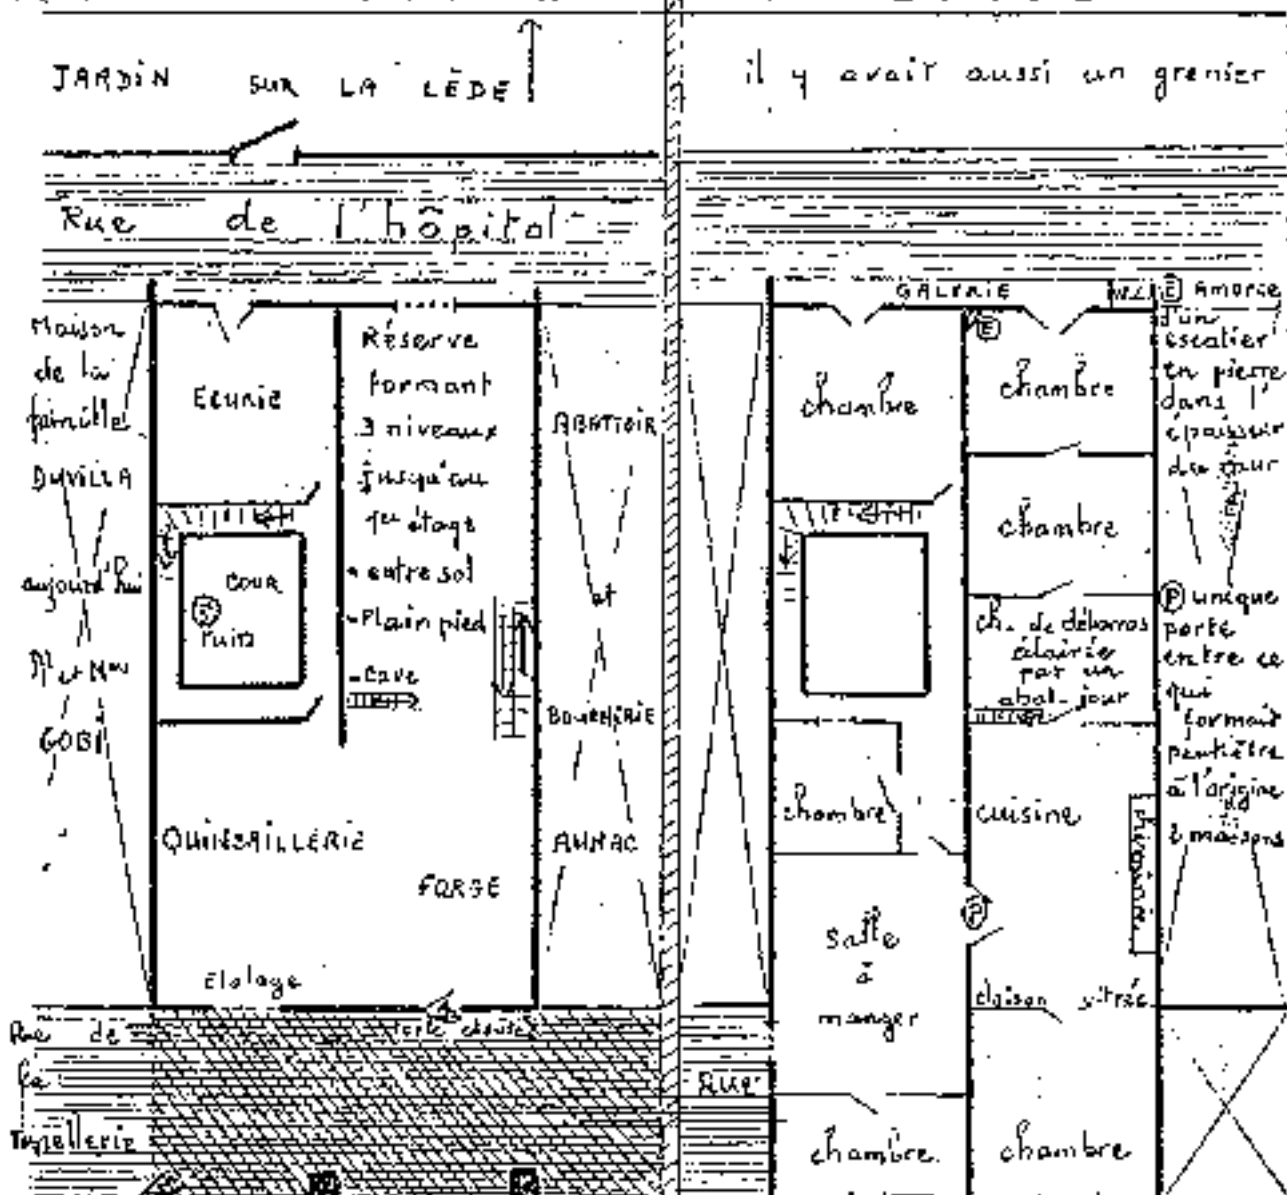 JARDIN SUR LA LÈDE
il y avait aussi un grenier
Rue de l'hôpital
Maison
de la
famille
DUVILLA
aujourd'hui
Mr et Mme
GOBI
ECURIE
COUR
Puits
QUINCAILLERIE
FORGE
Etalage
Réserve
formant
3 niveaux
jusqu'au
1er étage
- entre sol
- Plain pied
- Cave
ABATTOIR
et
BOUCHERIE
AUNAC
Rue de
la
GALERIE
W.C
chambre
E
chambre
chambre
ch. de débarras
éclairée
par un
abat-jour
chambre
cuisine
P
salle
à
manger
cloison vitrée
Rue
chambre
chambre
E Amorce
d'un
escalier
en pierre
dans l'
épaisseur
du mur
P unique
porte
entre ce
qui
formait
peutêtre
à l'origine
2 maisons